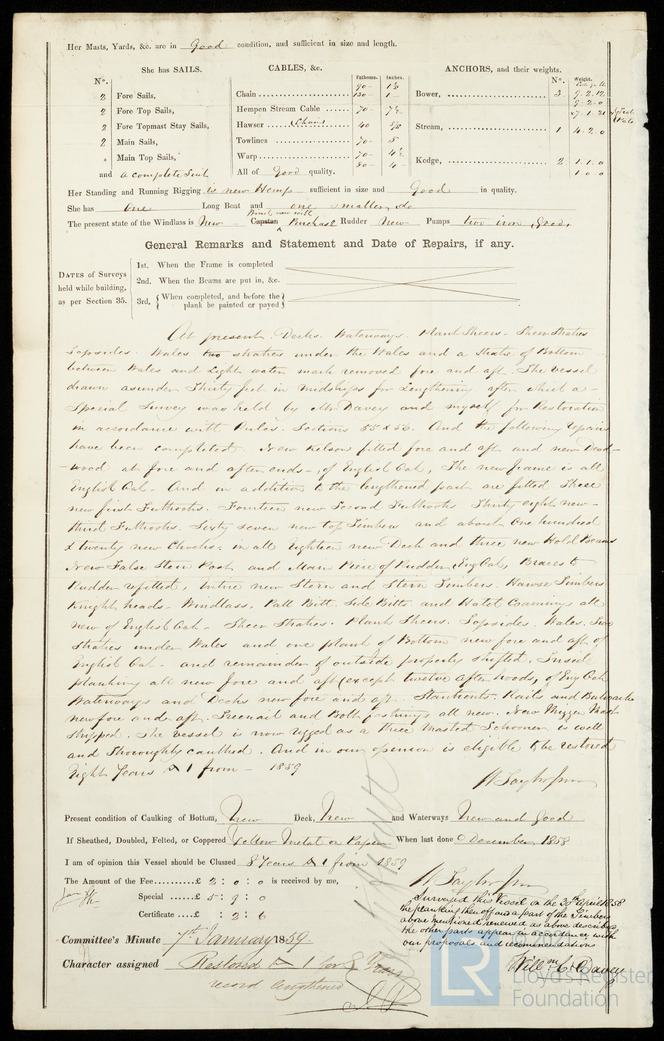 Her Masts, Yards, &c. are in Good condition, and sufficient in size and length.
She has SAILS.
CABLES, &c.
ANCHORS, and their weights.
No.
Fathoms.
Inches.
No.
Weight.
2 Fore Sails,
Chain
90
130 1
Bower, 3 9.2.12
9.2.0
7.1.21
2 Fore Top Sails,
Hempen Stream Cable 70 7½
2 Fore Topmast Stay Sails,
Hawser Chain 40
Stream, 1 4.2.0
2 Main Sails,
Towlines 70 5
Main Top Sails,
Warp 70 4½
80 4
Kedge, 2 1.1.0
1.0.0
and a complete suit
All of Good quality.
Her Standing and Running Rigging is new Hemp sufficient in size and Good in quality.
She has one Long Boat and one smaller do
The present state of the Windlass is New Capstan Purchase Rudder New Pumps two iron, good,
General Remarks and Statement and Date of Repairs, if any.
DATES of Surveys held while building, as per Section 35.
1st. When the Frame is completed
2nd. When the Beams are put in, &c.
3rd, When completed, and before the plank be painted or payed
At present Decks. Waterways. Plank Sheers. Sheer Strakes
Topsides. Wales two strakes under the Wales and a Strake of Bottom
between Wales and Light water mark removed fore and aft. The vessel
drawn asunder Thirty feet in midships for Lengthening after which a
Special Survey was held by Mr Davey and myself for Restoration
in accordance with Rules. Sections 55 & 56. And the following repairs
have been completed. New Kelson fitted fore and aft and new Dead-
-wood at fore and after ends, of English Oak, The new frame is all
English Oak. And in addition to the lengthened part are fitted Three
new first Futtocks. Fourteen new Second Futtocks Thirty eight new
third Futtocks. Sixty seven new top Timbers and about One hundred
& twenty new Chocks; in all Eighteen new Deck and three new Hold Beams
New False Stern Post and Main Piece of Rudder, Eng Oak, Braces &
Rudder refitted. Entire new Stern and Stern Timbers. Hawse Timbers
Knight heads. Windlass. Pall Bitt, Side Bitts and Hatch Coamings all
new of English Oak. Sheer Strakes. Plank Sheers. Topsides. Wales. Two
Strakes under Wales and one plank of Bottom new fore and aft, of
English Oak. and remainder of outside properly shifted. Inside
planking all new fore and aft (except twelve after hoods, of Eng Oak
Waterways and Decks new fore and aft. Stanchions. Rails and Bulwarks
new fore and aft. Treenail and Bolt fastnings all new. New Mizzen Mast
shipped. The vessel is now rigged as a three Masted Schooner is well
and thoroughly caulked. And in our opinion is eligible to be restored
Eight Years A 1 from - 1859
Present condition of Caulking of Bottom, New Deck, New and Waterways New and good
If Sheathed, Doubled, Felted, or Coppered Yellow Metal on Paper When last done December 1858
I am of opinion this Vessel should be Classed 8 Years A 1 from 1859
The Amount of the Fee £ 2 : 0 : 0 is received by me,
Special £ 5 : 9 : 0
Certificate £ : 2 : 6
Surveyed this Vessel on the 30th April 1858
the planking then off and a part of the Timbers
above mentioned renewed as above described
the other parts appear in accordance with
our proposals and recommendations
Willm C. Davey
Committee's Minute 7th January 1859
Character assigned Restored A 1 for 8 Years
record lengthened
LR Lloyd's Register
Foundation